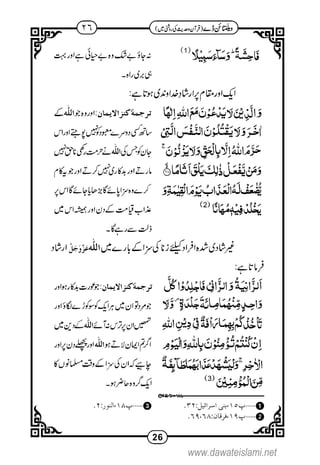 ویلنٹائن ڈے (قرآن وحدیث کی روشنی میں) ۲۶
فَاحِشَةً ؕ وَسَآءَ سَبِیْلًا (1) نہ جاؤ بے شک وہ بے حیائی ہے اور بہت
ہی بری راہ۔
ایک اور مقام پر ارشادِ خداوندی ہوتا ہے:
وَ الَّذِیْنَ لَا یَدْعُوْنَ مَعَ اللّٰهِ اِلٰهًا ترجمۂ کنز الایمان: اور وہ جو اللہ کے
اٰخَرَ وَ لَا یَقْتُلُوْنَ النَّفْسَ الَّتِیْ ساتھ کسی دوسرے معبود کو نہیں پوجتے اور اس
حَرَّمَ اللّٰهُ اِلَّا بِالْحَقِّ وَ لَا یَزْنُوْنَ ۚ جان کو جس کی اللہ نے حرمت رکھی ناحق نہیں
وَ مَنْ یَّفْعَلْ ذٰلِكَ یَلْقَ اَثَامًا مارتے اور بدکاری نہیں کرتے اور جو یہ کام
یُّضٰعَفْ لَهُ الْعَذَابُ یَوْمَ الْقِیٰمَةِ وَ کرے وہ سزا پائے گا بڑھایا جائے گا اس پر
یَخْلُدْ فِیْهٖ مُهَانًا (2) عذاب قیامت کے دن اور ہمیشہ اس میں
ذلت سے رہے گا۔
غیر شادی شدہ افراد کیلئے زنا کی سزا کے بارے میں اللہ عَزَّوَجَلَّ ارشاد
فرماتا ہے:
اَلزَّانِیَةُ وَ الزَّانِیْ فَاجْلِدُوْا كُلَّ ترجمۂ کنز الایمان: جو عورت بدکار ہو اور
وَاحِدٍ مِّنْهُمَا مِائَةَ جَلْدَةٍ ۪ وَّ لَا جو مرد تو ان میں ہر ایک کو سو کوڑے لگاؤ اور
تَاْخُذْكُمْ بِهِمَا رَاْفَةٌ فِیْ دِیْنِ اللّٰهِ تمہیں ان پر ترس نہ آئے اللہ کے دین میں
اِنْ كُنْتُمْ تُؤْمِنُوْنَ بِاللّٰهِ وَ الْیَوْمِ اگر تم ایمان لاتے ہو اللہ اور پچھلے دن پر اور
الْاٰخِرِ ۚ وَ لْیَشْهَدْ عَذَابَهُمَا طَآىٕفَةٌ چاہیے کہ ان کی سزا کے وقت مسلمانوں کا
مِّنَ الْمُؤْمِنِیْنَ (3) ایک گروہ حاضر ہو۔
1 ......پ۱۵، بنی اسرائیل: ۳۲. 3 ......پ۱۸، النور: ۲.
2 ......پ۱۹، الفرقان: ۶۸، ۶۹.
26
www.dawateislami.net